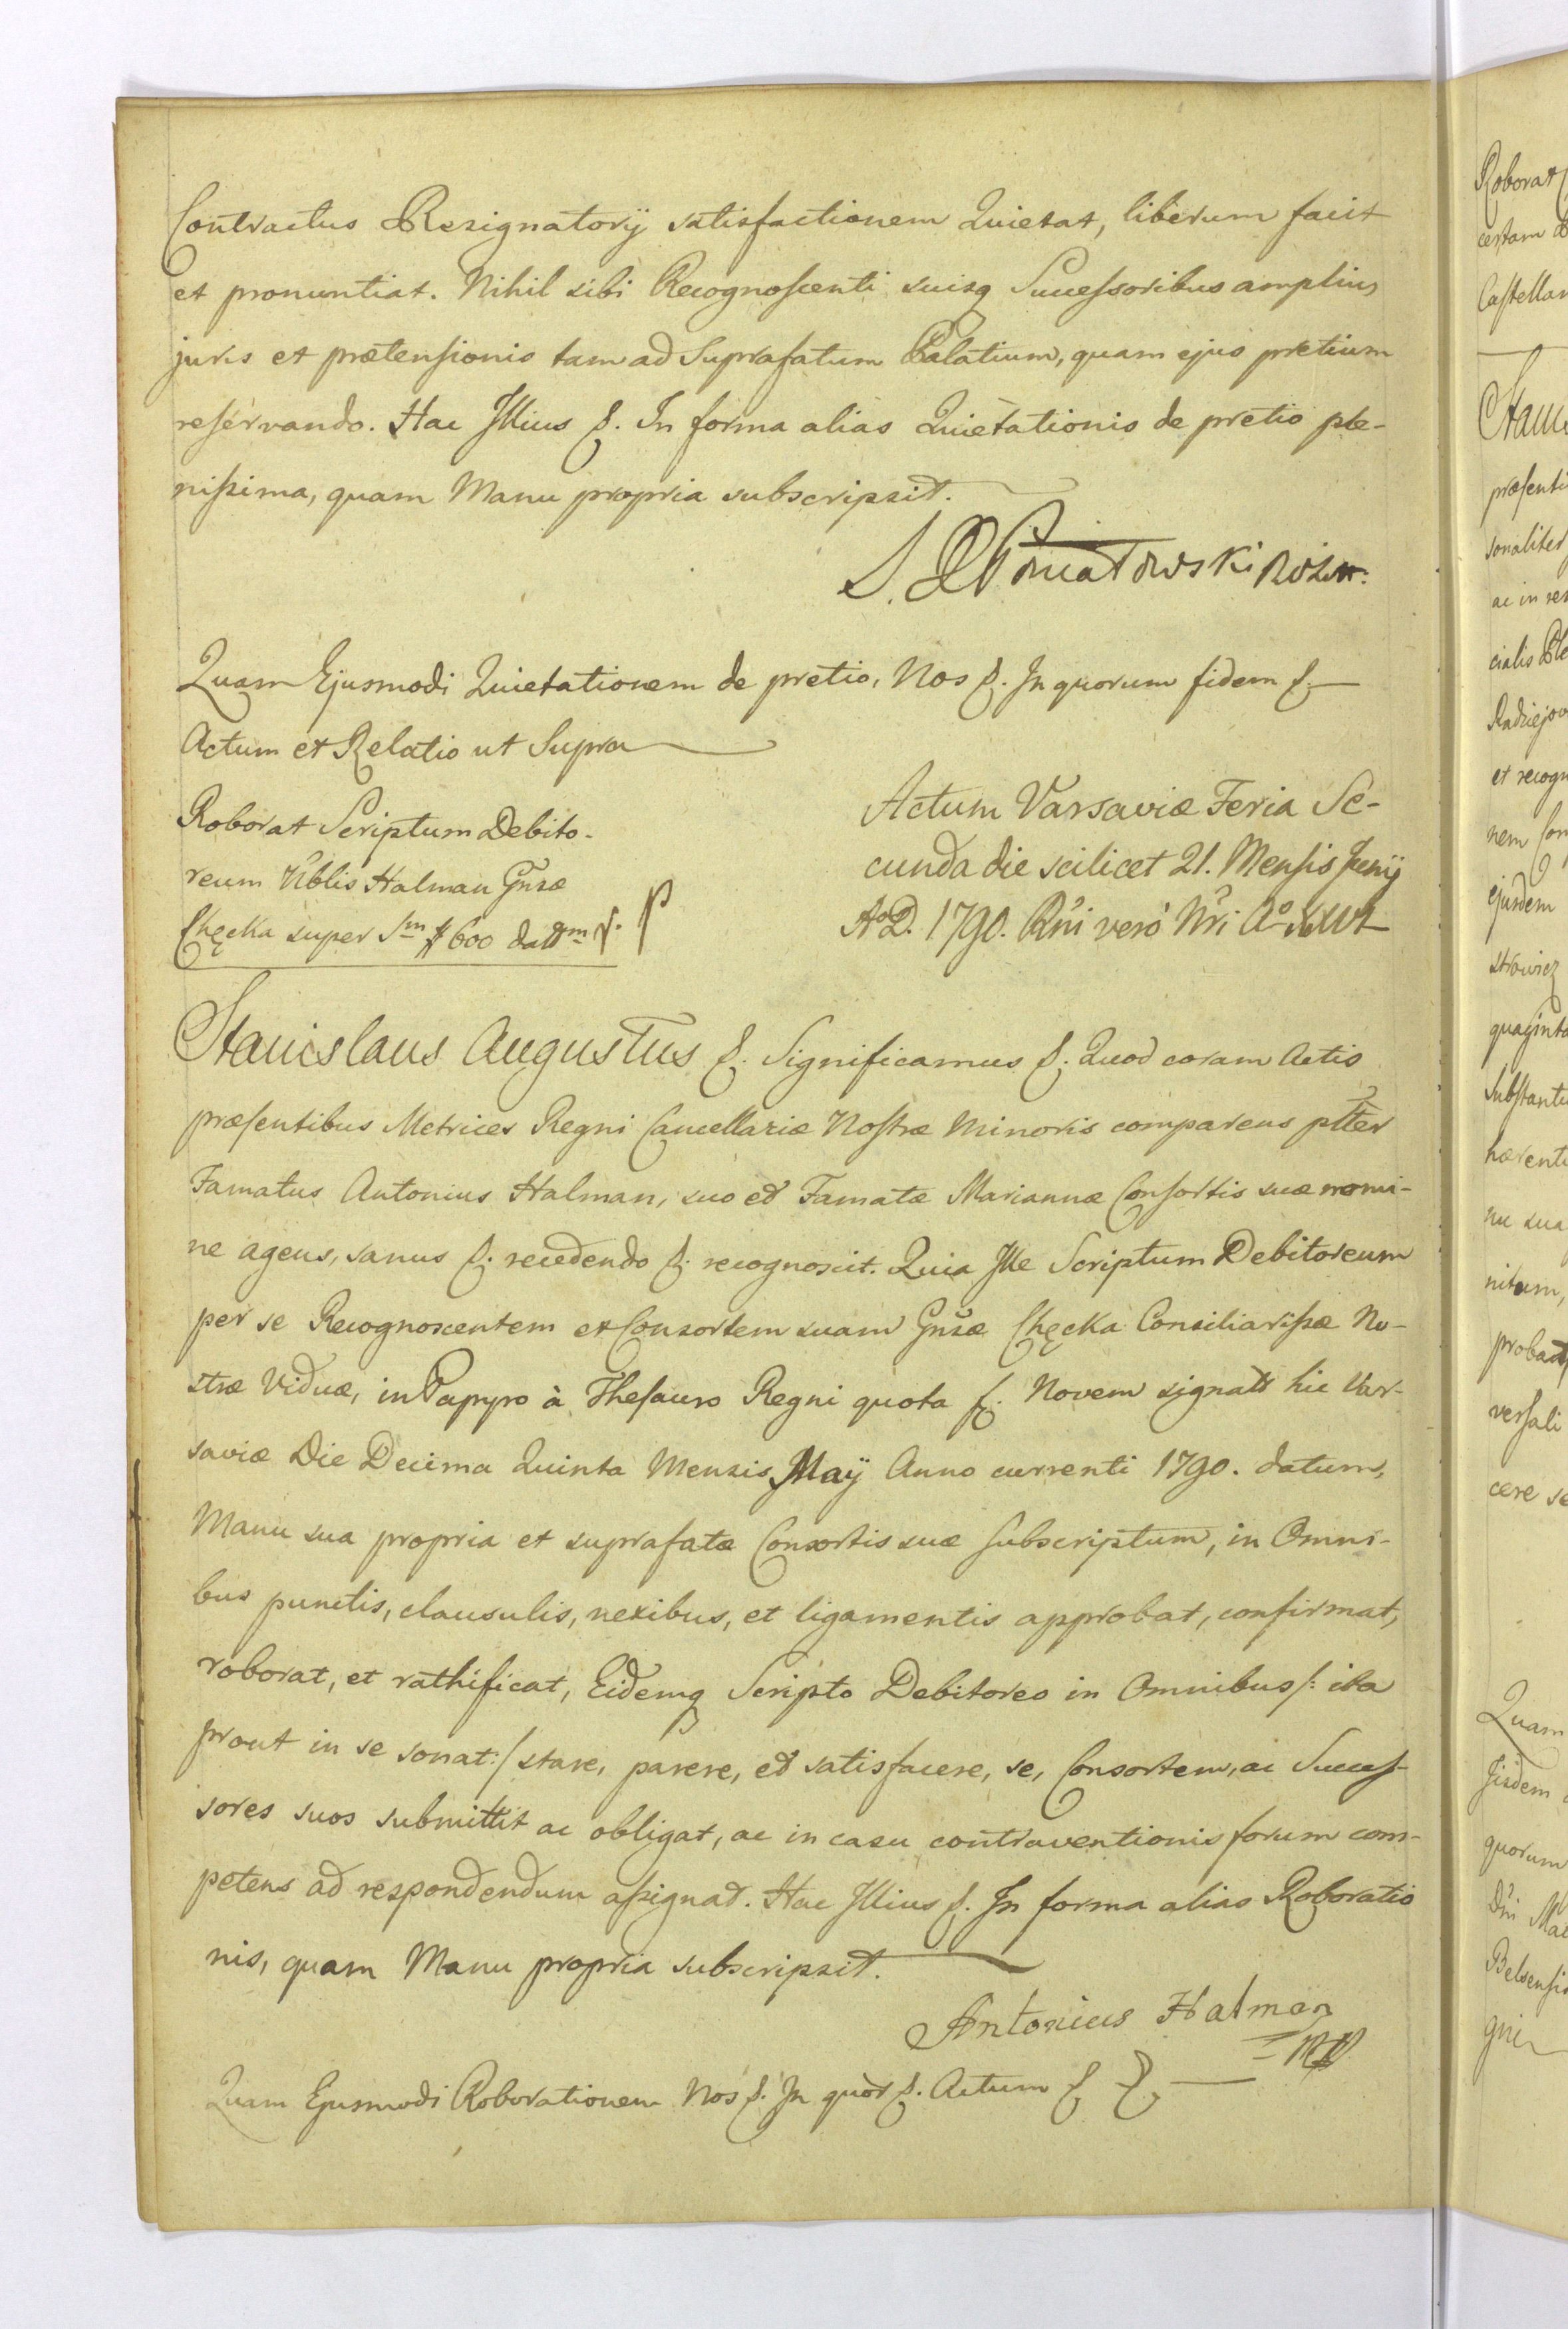 Contractus Resignatorij satisfactionem Quietat, liberum facit
et pronuntiat. Nihil sibi Recognoscenti suisq Successoribus amplius
juris et prætensionis tam ad Suprafatum Palatium, quam ejus pretium
reservando. Hac Illius &. In forma alias Quietationis de pretio ple-
nissima, quam Manu propria subscripsit.
Poniatowski
Quam Ejusmodi Quietationem de pretio, Nos &. In quorum fidem &.
Actum et Relatio ut Supra
Roborat Scriptum Debito-
reum Nblis Halman Gnsæ
Chęcka super Sm # 600 dattm &.
Actum Varsaviæ Feria Se-
cunda die scilicet 21. Mensis Junij
AoD. 1790. Rni vero Nri Ao
Stanislaus Augustus &. Significamus &. Quod coram Actis
præsentibus Metrices Regni Cancellariæ Nostræ Minoris comparens pltter
Famatus Antonius Halman, suo et Famatæ Mariannæ Consortis suæ nomi-
ne agens, sanus &. recedendo &. recognoscit. Quia Ille Scriptum Debitoreum
per se Recognoscentem et Consortem suam Gnsæ Chęcka Consiliarissæ No-
stræ Viduæ, in Papyro à Thesauro Regni quota f. Novem signato hic Var-
saviæ Die Decima Quinta Mensis Maÿ Anno currenti 1790. datum,
Manu sua propria et suprafatæ Consortis suæ subscriptum, in Omni-
bus punctis, clausulis, nexibus, et ligamentis approbat, confirmat,
roborat, et rathificat, Eidemq Scripto Debitoreo in Omnibus /: ita
prout in se sonat :/ stare, parere, et satisfacere, se, Consortem, ac Succes-
sores suos submittit ac obligat, ac in casu contraventionis forum com-
petens ad respondendum assignat. Hac Illius &. In forma alias Roboratio
nis, quam Manu propria subscripsit.
Antonius Halman
Quam Ejusmodi Roborationem Nos &. In quor &. Actum & &.
Roborat
certam
Castellan
præsenti
sonaliter
ac in
cialis
Radziejow
et recogn
nem
ejusdem
strowicz
quaginta
Substantu
hærenti
nu sua
nitum,
probat
versali
cere se
Quam
quorum
Dni
Belsensis